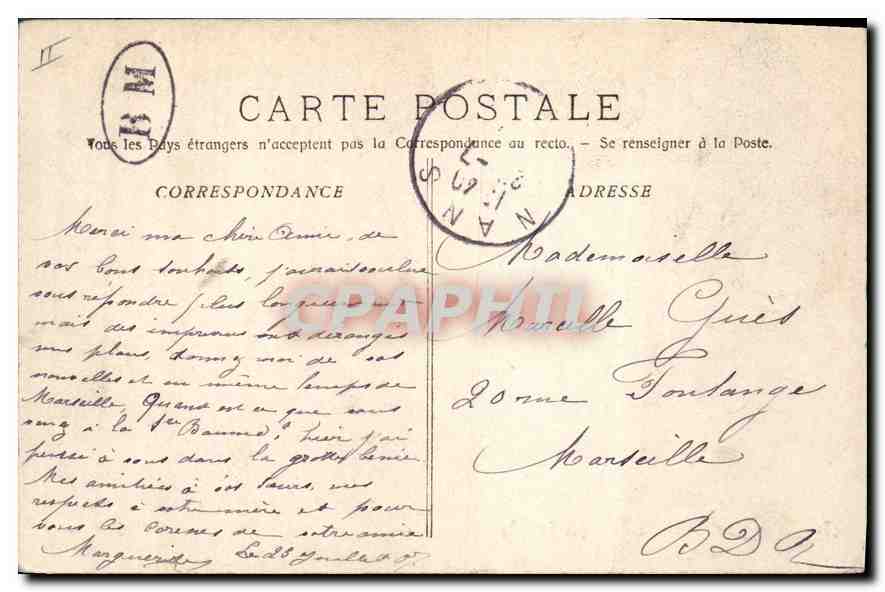 II
B M
CARTE POSTALE
Tous les Pays étrangers n'acceptent pas la Correspondance au recto. - Se renseigner à la Poste.
CORRESPONDANCE
ADRESSE
NANS
CPAPHIL
Merci ma chère Amie, de
vos bons souhaits, j'aurais voulue
vous répondre plus longuement
mais des imprévus ont dérangés
mes plans, donnez moi de vos
nouvelles et en même temps de
Marseille. Quand est ce que vous
venez à la Ste Baume? hier j'ai
pensé à vous dans la grotte bénie
Mes amitiés à vos sœurs, mes
respects à votre mère et pour
vous les caresses de votre amie
Marguerite Le 23 Juillet 07
Mademoiselle
Marcelle Guès
20 rue Fontange
Marseille
BDR